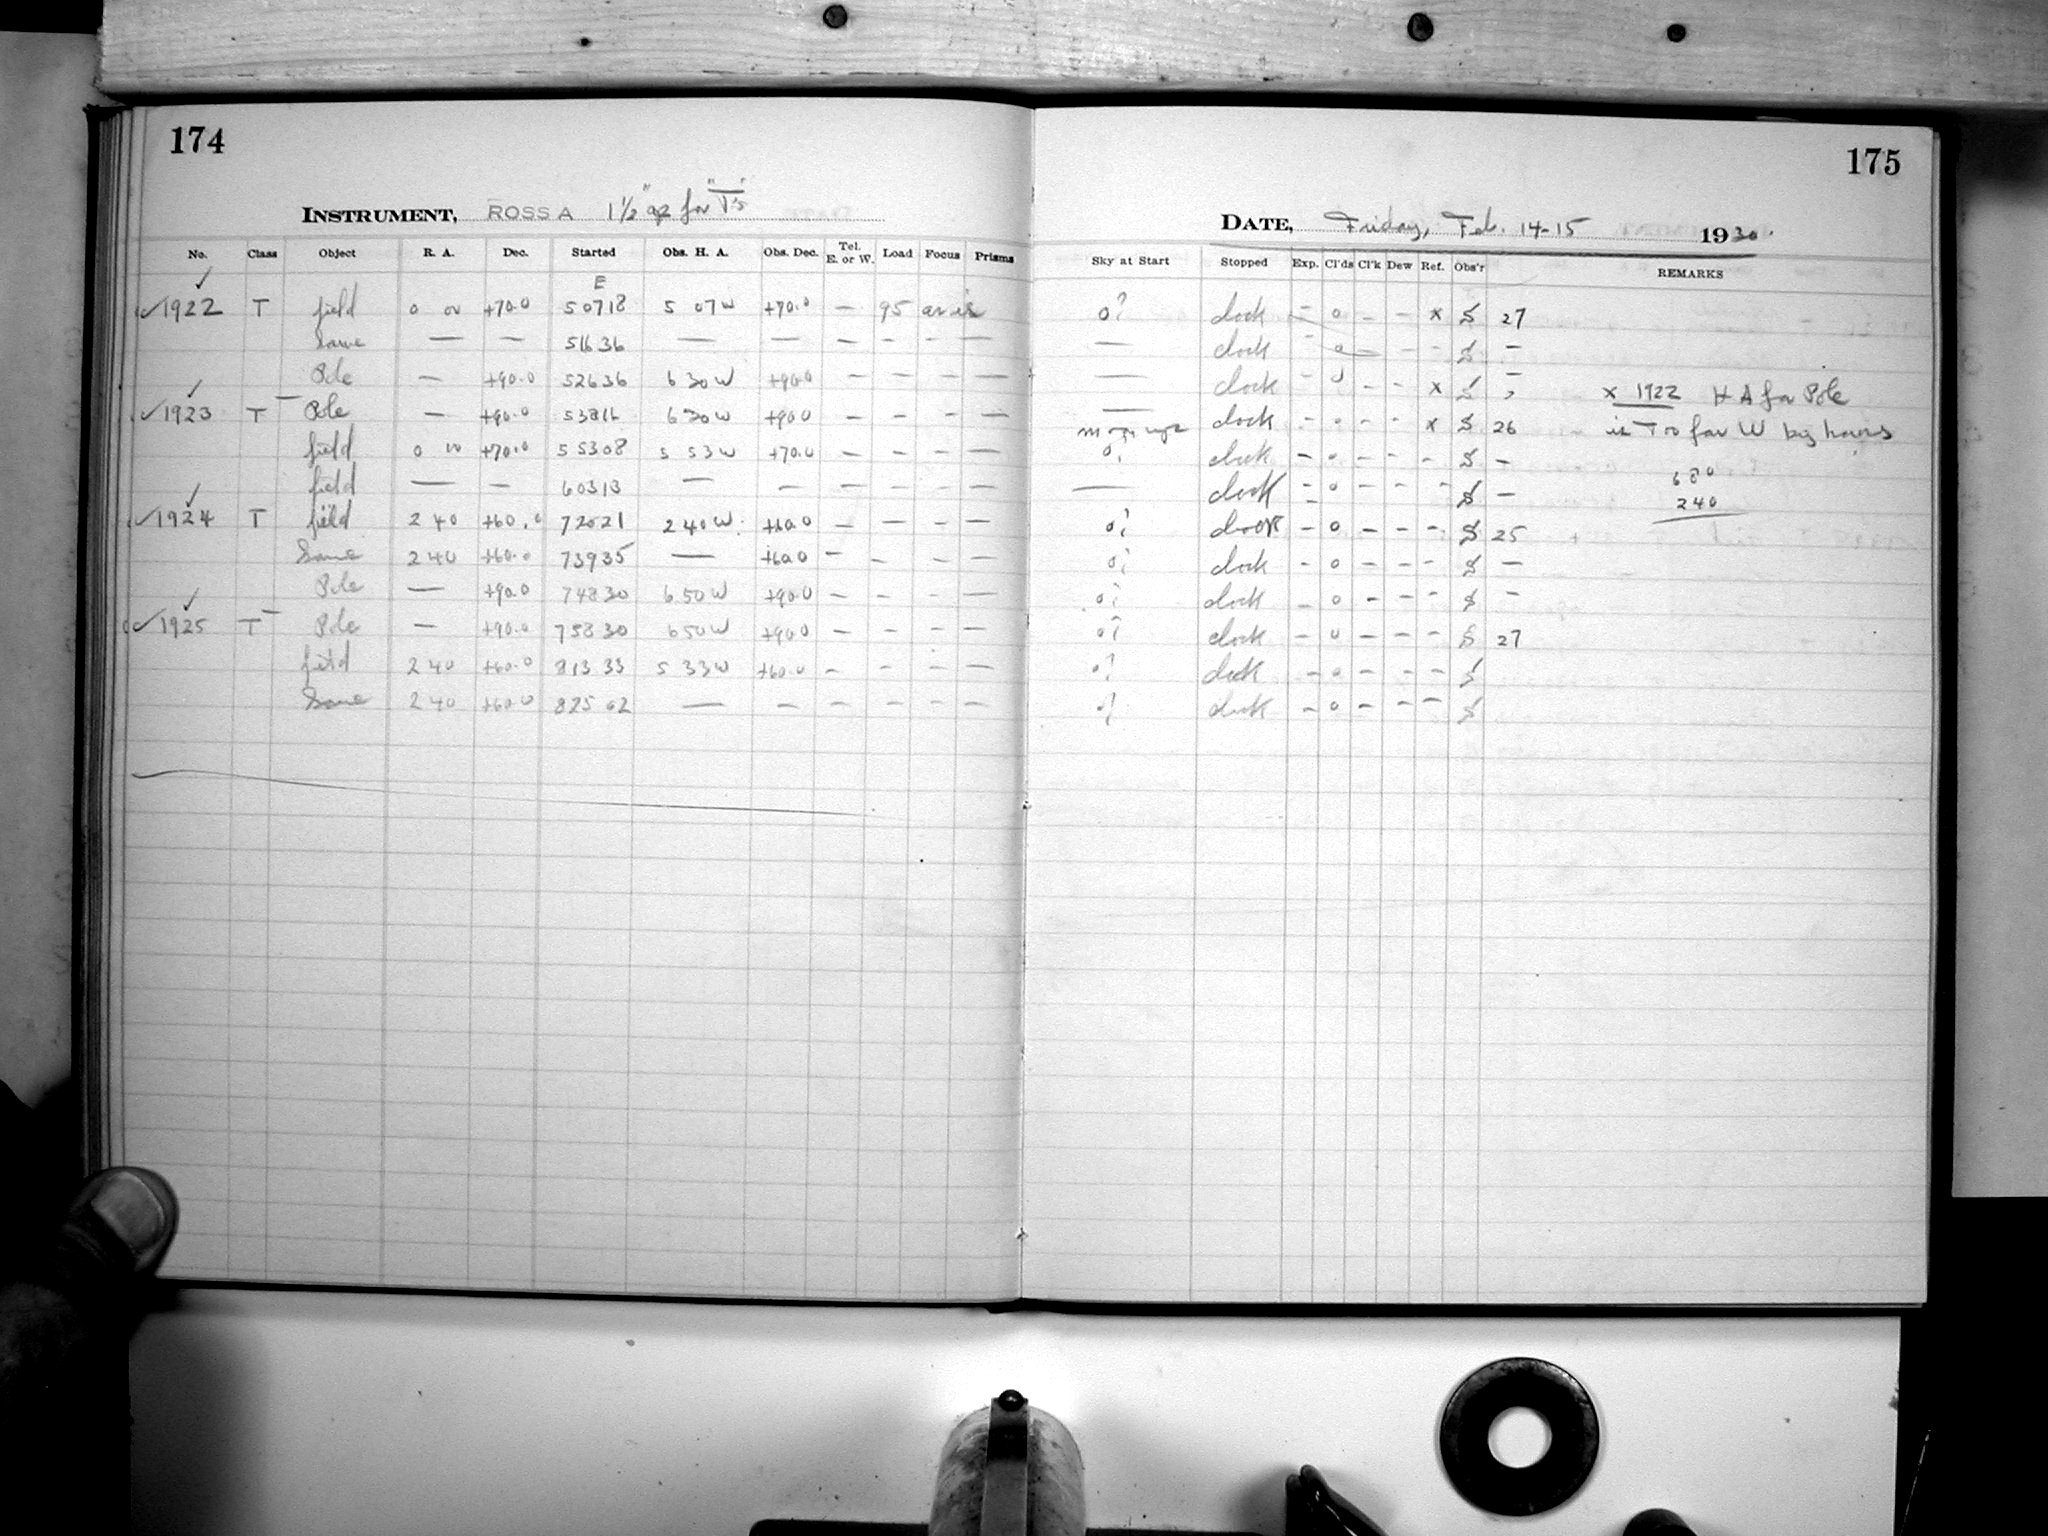 174
INSTRUMENT, ROSS A 1½" ap for "T's"
No. Class Object R. A. Dec. Started Obs. H. A. Obs. Dec. Tel. E. or W. Load Focus Prisms
E
✓1922 T field 0 00 +70.0 50718 5 07W +70.0 — 95
Same — — 51636 — — — — — —
Pole — +90.0 52636 6 30W +90.0 — — — —
✓1923 T Pole — +90.0 6 30W +90.0 — — — —
field 0 00 +70.0 55308 5 53W +70.0 — — — —
field — — 60313 — — — — — —
✓1924 T field 2 40 +60.0 72021 2 40W +60.0 — — — —
Same 2 40 +60.0 73935 — +60.0 — — — —
Pole — +90.0 74830 6 50W +90.0 — — — —
✓1925 T Pole — +90.0 75830 6 50W +90.0 — — — —
field 2 40 +60.0 81333 5 33W +60.0 — — — —
Same 2 40 +60.0 82502 — — — — — —
175
DATE, Friday, Feb. 14-15 1930.
Sky at Start Stopped Exp. Cl'ds Cl'k Dew Ref. Obs'r REMARKS
0? clock — 0 — — x S 27
— clock — 0 — — — S —
— clock — 0 — — x S
x 1922 H A for Pole
— clock — 0 — — x S 26
is Too far W by hours
clock — 0 — — — S —
— clock — 0 — — — S —
240
0? clock — 0 — — — S 25
0? clock — 0 — — — S —
0? clock — 0 — — — S —
0? clock — 0 — — — S 27
0? clock — 0 — — — S
0? clock — 0 — — — S